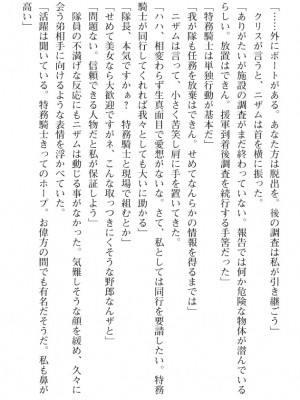 「……外にボートがある。あなた方は脱出を。後の調査は私が引き継ごう」
クリスが言うと、ニザムは首を横に振った。
「ありがたいが施設の調査がまだ終わっていない。報告では何か危険な物体が潜んでいる
らしい。放置はできん。援軍到着後調査を続行する手筈だった」
「特務騎士は単独行動が基本だ」
「我が隊も任務を放棄はできん。せめてなんらかの情報を得るまでは」
ニザムは言って、小さく苦笑し肩に手を置いてきた。
「ハハ、相変わらず生真面目で愛想がないな。さて、私としては同行を要請したい。特務
騎士が同行してくれれば我々としても大いに助かる」
「隊長、本気ですかぁ？　特務騎士と現場で組むとか」
「せめて美女なら大歓迎ですがネ、こんな取っつきにくそうな野郎なんざと」
「問題ない。信頼できる人物だと私が保証しよう」
隊員の不満げな反応にもニザムは動じる事がなかった。気難しそうな顔を緩め、久々に
会う弟相手に向けるような表情を浮かべていた。
「活躍は聞いている。特務騎士きってのホープ。お偉方の間でも有名だそうだ。私も鼻が
高い」